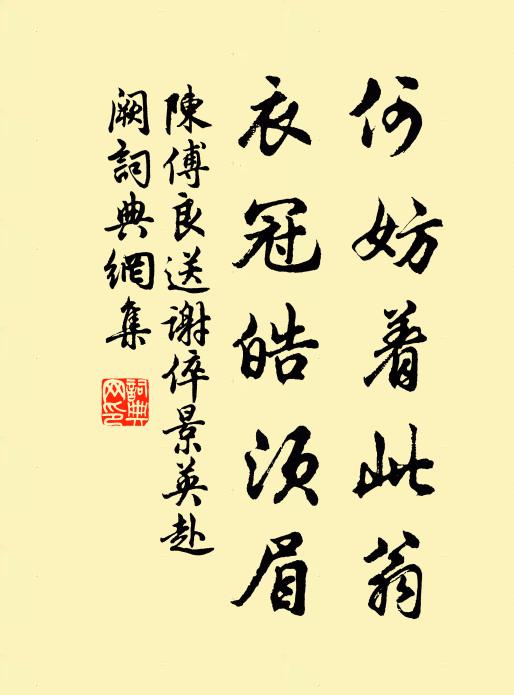 何妨着此翁
衣冠皓须眉
陳傅良送謝倅景英赴
闕詞典網集
詞典
网印